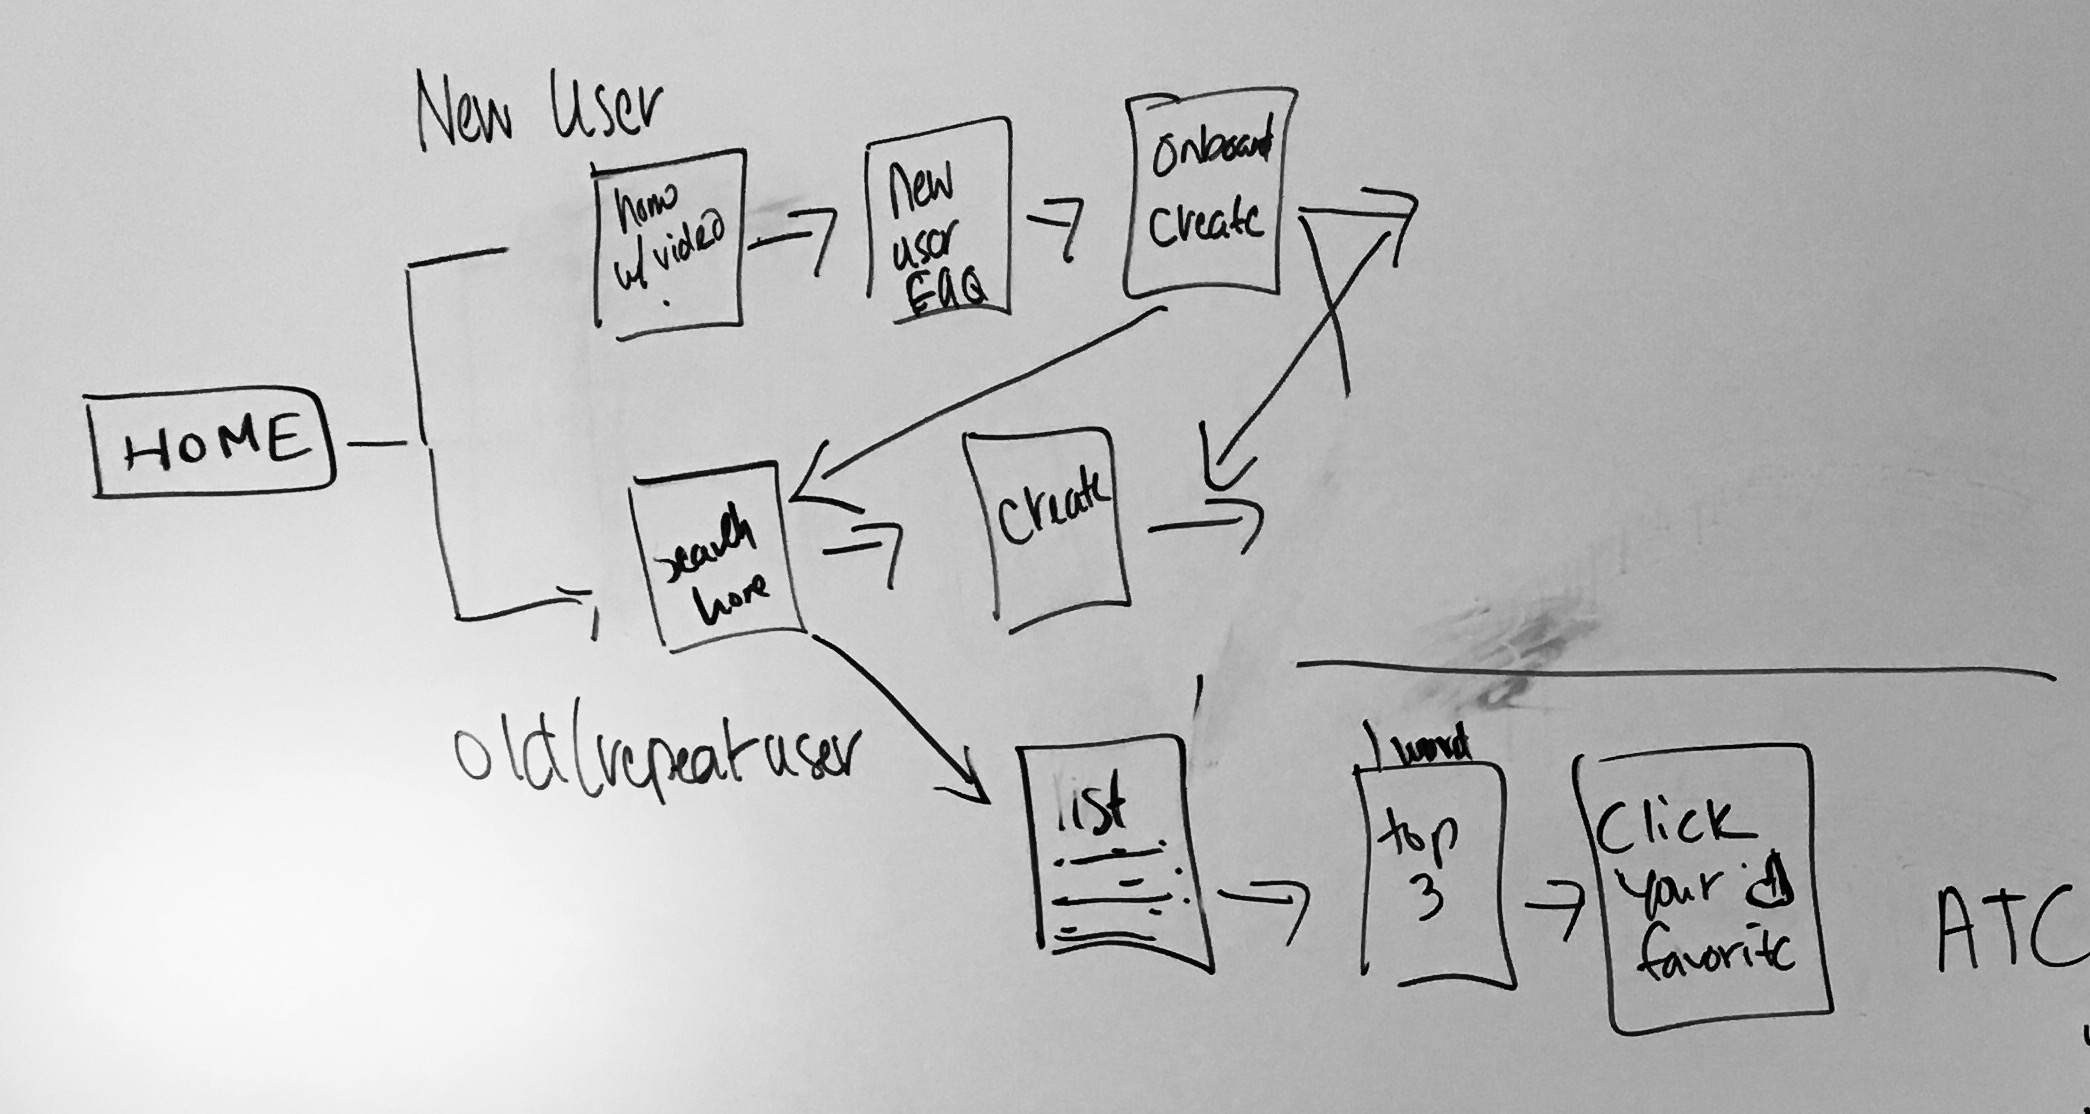 New User
home
w/ video
New
user
FAQ
onboard
create
HOME
search
home
create
old/repeat user
list
1 word
top
3
Click
your
favorite
ATC